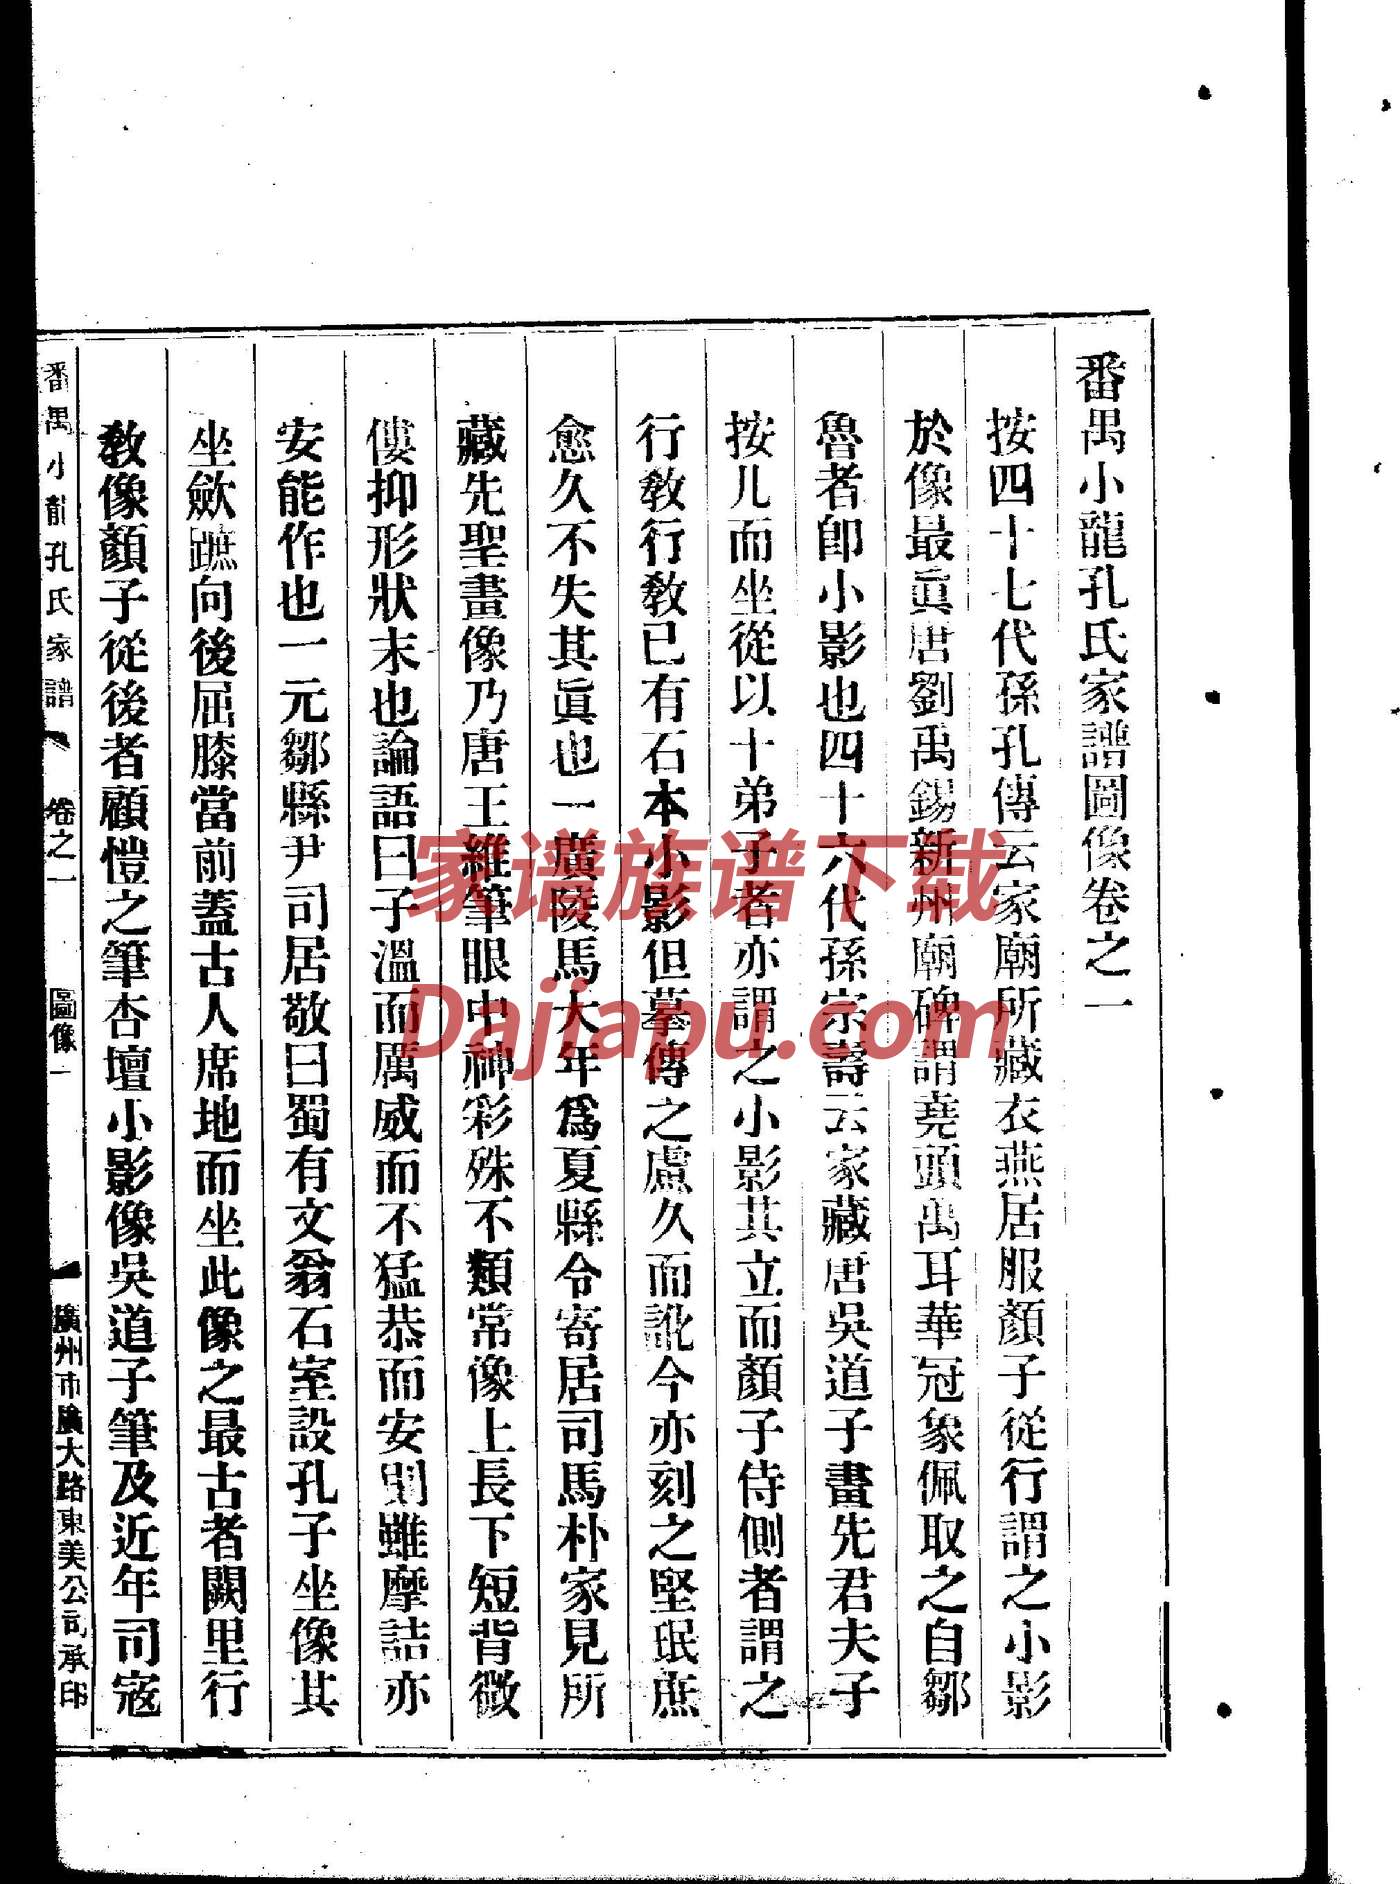 番禺小龍孔氏家譜圖像卷之一
按四十七代孫孔傳云家廟所藏衣燕居服顏子從行謂之小影
於像最眞唐劉禹錫新州廟碑謂堯頭禹耳華冠象佩取之自鄒
魯者卽小影也四十六代孫宗壽云家藏唐吳道子畫先君夫子
按几而坐從以十弟子者亦謂之小影其立而顏子侍側者謂之
行敎行敎已有石本小影但摹傳之慮久而訛今亦刻之堅珉庶
愈久不失其眞也一廣陵馬大年爲夏縣令寄居司馬朴家見所
藏先聖畫像乃唐王維筆眼中神彩殊不類常像上長下短背微
僂抑形狀末也論語曰子溫而厲威而不猛恭而安則雖摩詰亦
安能作也一元鄒縣尹司居敬曰蜀有文翁石室設孔子坐像其
坐歛蹠向後屈膝當前蓋古人席地而坐此像之最古者闕里行
敎像顏子從後者顧愷之筆杏壇小影像吳道子筆及近年司寇
番禺小龍孔氏家譜 卷之一 圖像 一 廣州市廣大路東美公司承印
家谱族谱下载
Dajiapu.com